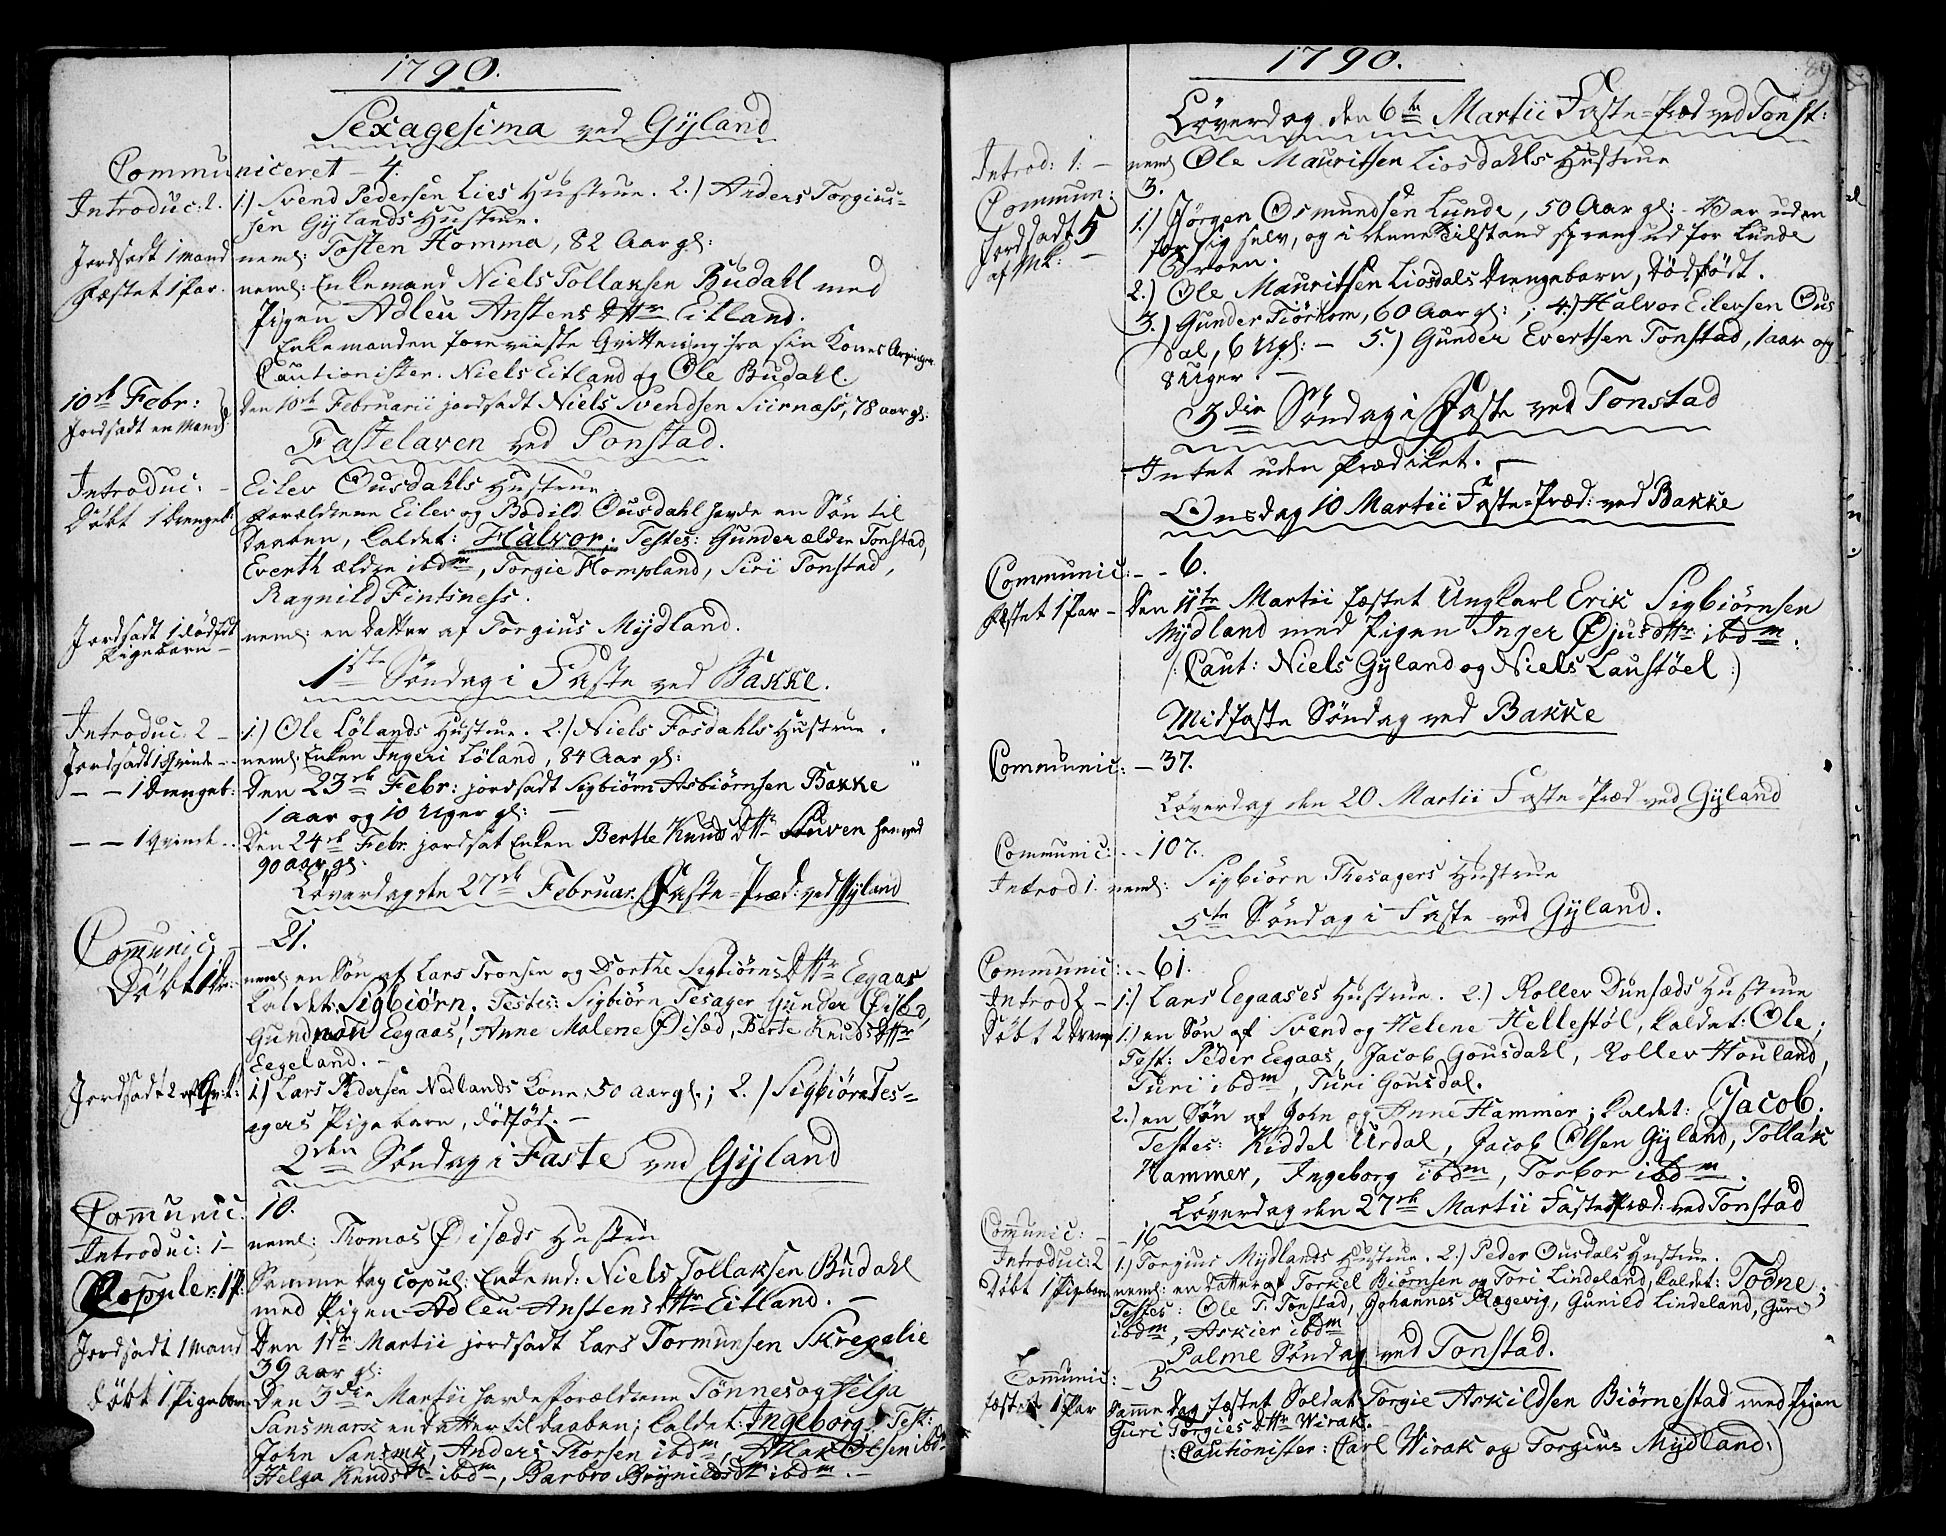 1790.
Sexagesima ved Gyland
Communiceret - 4.
Introduc: 2. 1) Svend Pedersen Lies Hustrue. 2.) Anders Torgius-
sen Gylands Hustrue.
Jordfadt 1 mand neml: Tosten Homma, 82 Aar gl:
Fæstet 1 Par. neml: Enkemand Niels Tollaksen Budahl med
Pigen Adleu Anstens Dttr Eitland.
Enkemanden foreviiste Qvittering fra sin Kones Arvinger
Cautionister. Niels Eitland og Ole Budahl.
10de Febr: Den 10de Februarii jordfadt Niels Svendsen Siirnæss, 78 aar gl:
Jordfadt en Mand
Fastelaven ved Tonstad.
Introduc: - Eilev Ousdahls Hustrue.
Døbt 1 Drengeb: Forældrene Eilev og Bodild Ousdahl havde en Søn til
Daaben, kaldet: Halvor; Testes: Gunder ældre Tonstad,
Everth ældre ibdm, Torgie Hompland, Siri Tonstad,
Ragnild Fintsness.
Jordfadt 1 dødfdt neml: en Datter af Torgius Mydland.
Pigebarn -
1ste Søndag i Faste ved Bakke.
Introduc: 2 - 1.) Ole Lølands Hustrue. 2.) Niels Fosdahls Hustrue.
Jordfadt 1 Qvinde - neml: Enken Ingeri Løland, 84 Aar gl:
- - 1 Drengeb: Den 23de Febr: jordfadt Sigbiørn Asbiørnsen Bakke
1 aar og 10 Uger gl:
- - 1 qvinde - Den 24de Febr. jordfat Enken Berthe Knuds Dttr henved
90 aar gl:
Løverdag den 27de Februar. Faste-Præd: ved Gyland
Comunic - -21.
Døbt neml: en Søn af Lars Tronsen og Dorthe Sigbiørns Dttr Eegaas
kaldet: Sigbiørn. Testes: Sigbiørn Tesager Gunder Øisæd,
Eegaas, Anne Malene Øisæd, Berte Knuds Dttr
Eegeland. -
Jordfadt 2 af Qvk: 1) Lars Pedersen Nedlands Kone 50 aar gl.; 2.) Sigbiørn Tes-
agers Pigebarn, dødfød. -
2den Søndag i Faste ved Gyland
Comunic. 10.
Introduc: 1 - neml: Thomas Øisæds Hustru
Copuler: 1 P: Samme Dag copul: Enkemd: Niels Tollaksen Budahl
med Pigen Adleu Anstens Dttr Eitland. -
Jordfadt 1 Mand Den 1ste Martii jordfadt Lars Tormunsen Skregelie
39 aar gl:
Døbt 1 Pigebarn Den 3die Martii havde Forældrene Tønnes og Helga
Sansmark en Datter til Daaben; kaldet: Ingeborg; Test:
John Sansmk, Anders Thorsen ibdm, Olsen ibdm
Helga Knudsdtr ibdm, Barbro Brynildsdtr ibdm. -
1790.
89
Løverdag den 6te Martii Faste-Præd ved Tonst:
Introd: 1. - neml Ole Mauritsen Liosdahls Hustrue
Commun: 3.
Jordfadt 5 1.) Jørgen Osmundsen Lunde, 50 Aar gl: - Var uden
af Mk: - for sig selv, og i denne tilstand sprang ud for Lunde
Broen.
2.) Ole Mauritsen Liosdals Drengebarn, Dødfødt.
3.) Gunder Tiørhom, 60 Aar gl:; 4.) Halvor Eilevsen Ous
dal, 6 Ugl: - 5.) Gunder Evertsen Tonstad, 1 aar og
8 Uger. -
3die Søndag i Faste ved Tonstad
Intet uden Prædiket. -
Onsdag 10 Martii Faste-Præd: ved Bakke
Communic: - - 6.
Fæstet 1 Par - Den 11te Martii fæstet Ungkarl Erik Sigbiørnsen
Mydland med Pigen Inger Øjusdttr ibdm.
(: Caut: Niels Gyland og Niels Laustøel :)
Midfaste Søndag ved Bakke
Communic: - 37.
Løverdag den 20 Martii Faste-Præd ved Gyland
Communic: - - 107.
Introd 1. neml: Sigbiørn Thesagers Hustrue
5te Søndag i Faste ved Gyland.
Communic: - - 61.
Introd 2 - 1.) Lars Eegaases Hustrue. 2.) Rollev Dunsæds Hustrue
Døbt 2 Dreng 1.) en Søn af Svend og Helene Hellestøl, kaldet: Ole;
Test: Peder Eegaas, Jacob Gousdahl, Rollev Houland,
Turi ibdm, Turi Gousdal.
2.) en Søn af John og Anne Hammer; kaldet: Jacob.
Testes: Kiddel Urdal, Jacob Olsen Gyland, Tollak
Hammer, Ingeborg ibdm, Torbor ibdm.
Løverdag den 27de Martii Faste Præd: ved Tonstad
Comunic: - - 16
Introduc: 2 1.) Torgius Mydlands Hustrue. 2.) Peder Ousdals Hustrue.
Døbt 1 Pigebarn neml: en Datter af Torkel Biørnsen og Tori Lindeland, kaldet: Todne;
Testes: Ole T. Tonstad, Johannes Røgevig, Gunild Lindeland, Guri
ibdm, Askier ibdm
Palme Søndag ved Tonstad.
Communic: - 5
fæstet 1 Par Samme Dag fæstet Soldat Torgie Askildsen Biørnestad med Pigen
Guri Torgies Dttr Wirak.
(: Cautionister: Carl Wirak og Torgius Mydland :)